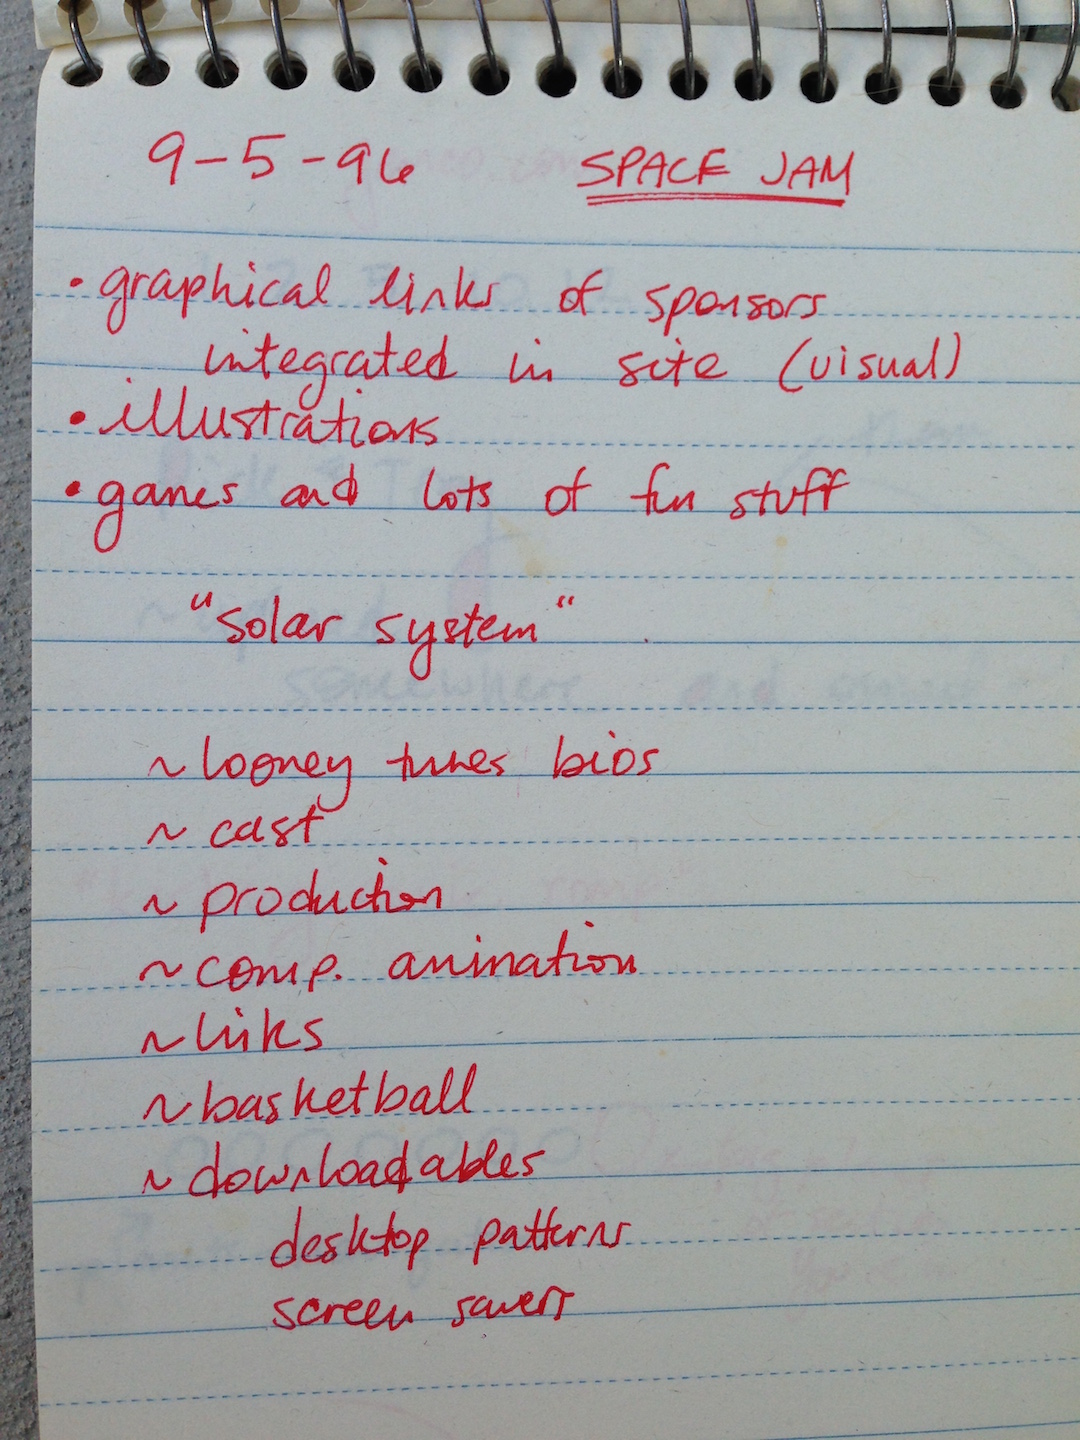 9-5-96 SPACE JAM
• graphical links of sponsors
integrated in site (visual)
• illustrations
• games and lots of fun stuff
"solar system"
~ looney tunes bios
~ cast
~ production
~ comp. animation
~ links
~ basketball
~ downloadables
desktop patterns
screen savers